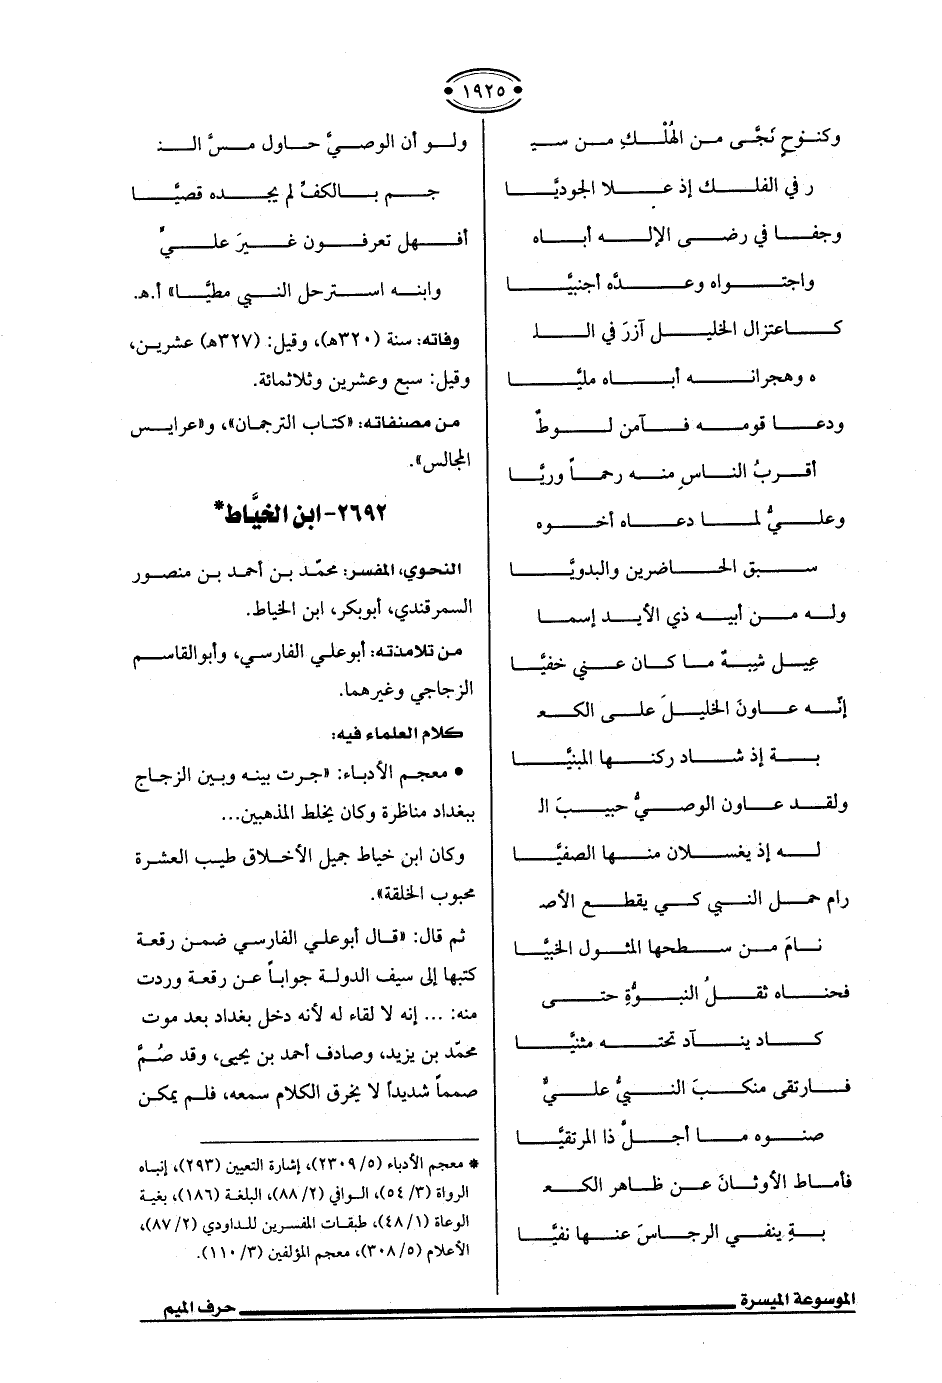 ١٩٢٥
وكنوحٍ نَجَّى من الهُلْكِ من سيـ
ر في الفلك إذ علا الجوديَّا
وجفا في رضى الإله أباه
واجتواه وعدَّه أجنبيَّا
كاعتزال الخليل آزرَ في اللـ
ه وهجرانه أباه مليَّا
ودعا قومه فآمن لوطٌ
أقربُ الناسِ منه رحماً وريَّا
وعليٌّ لما دعاه أخوه
سبق الحاضرين والبدويَّا
وله من أبيه ذي الأيد إسما
عِيل شبهٌ ما كان عني خفيَّا
إنَّه عاونَ الخليلَ على الكعـ
بة إذ شاد ركنها المبنيَّا
ولقد عاون الوصيُّ حبيبَ الـ
له إذ يغسلان منها الصفيَّا
رام حمل النبي كي يقطع الأصـ
نامَ من سطحها المثول الخبيَّا
فحناه ثقلُ النبوَّةِ حتى
كاد ينآد تحته مثنيَّا
فارتقى منكبَ النبيُّ عليٌّ
صنوه ما أجلَّ ذا المرتقيَّا
فأماط الأوثانَ عن ظاهر الكعـ
بةِ ينفي الرجاسَ عنها نفيَّا
ولو أن الوصيَّ حاول مسَّ النـ
جم بالكفِّ لم يجده قصيَّا
أفهل تعرفون غيرَ عليٍّ
وابنه استرحل النبي مطيَّا» أ.هـ.
وفاته: سنة (٣٢٠هـ)، وقيل: (٣٢٧هـ) عشرين،
وقيل: سبع وعشرين وثلاثمائة.
من مصنفاته: «كتاب الترجمان»، و«عرايس
المجالس».
٢٦٩٢- ابن الخيَّاط*
النحوي، المفسر: محمّد بن أحمد بن منصور
السمرقندي، أبوبكر، ابن الخياط.
من تلامذته: أبوعلي الفارسي، وأبوالقاسم
الزجاجي وغيرهما.
كلام العلماء فيه:
• معجم الأدباء: «جرت بينه وبين الزجاج
ببغداد مناظرة وكان يخلط المذهبين...
وكان ابن خياط جميل الأخلاق طيب العشرة
محبوب الخلقة».
ثم قال: «قال أبوعلي الفارسي ضمن رقعة
كتبها إلى سيف الدولة جواباً عن رقعة وردت
منه: ... إنه لا لقاء له لأنه دخل بغداد بعد موت
محمّد بن يزيد، وصادف أحمد بن يحيى، وقد صُمَّ
صمماً شديداً لا يخرق الكلام سمعه، فلم يمكن
* معجم الأدباء (٢٣٠٩/٥)، إشارة التعيين (٢٩٣)، إنباه
الرواة (٥٤/٣)، الوافي (٨٨/٢)، البلغة (١٨٦)، بغية
الوعاة (٤٨/١)، طبقات المفسرين للداودي (٨٧/٢)،
الأعلام (٣٠٨/٥)، معجم المؤلفين (١١٠/٣).
الموسوعة الميسرة حرف الميم